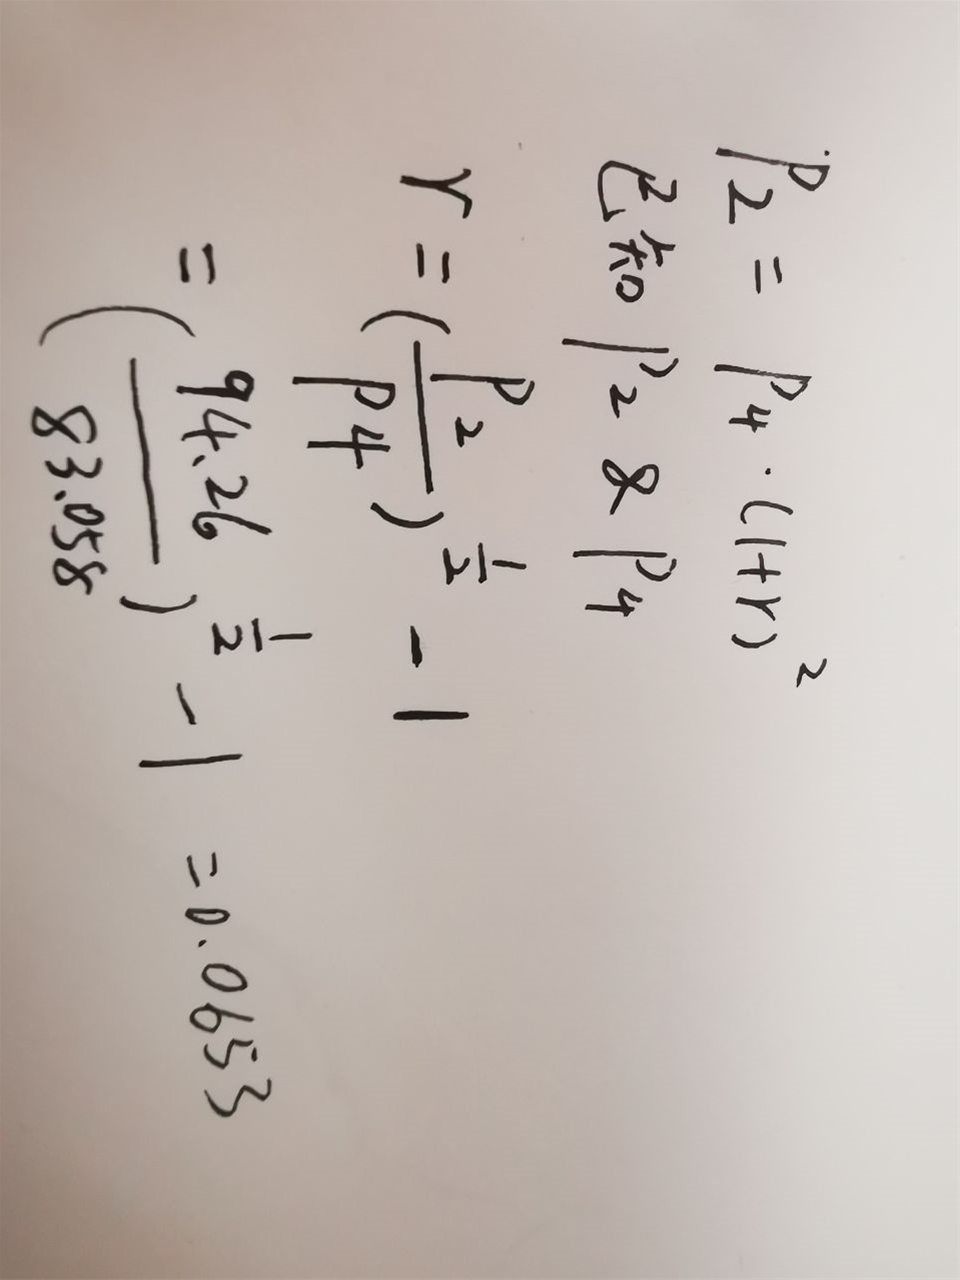 P2 = P4 · (1+r)^2
已知 P2 & P4
r = (P2/P4)^1/2 - 1
= (94.26/83.058)^1/2 - 1 = 0.0653